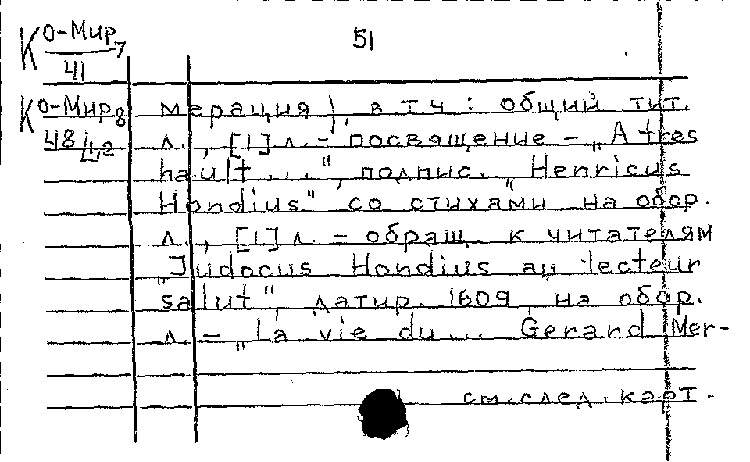 К о-Мир 7
41
51
К о-Мир 8
48 L2
мерация), в т.ч: общий тит.
л., [1] л. - посвящение - „A tres
hault ...", подпис. „Henricus
Hondius" со стихами на обор.
л., [1] л. - обращ. к читателям
„Judocus Hondius au lecteur
salut", датир. 1609, на обор.
л. - „La vie du ... Gerard Mer-
см. след. карт.